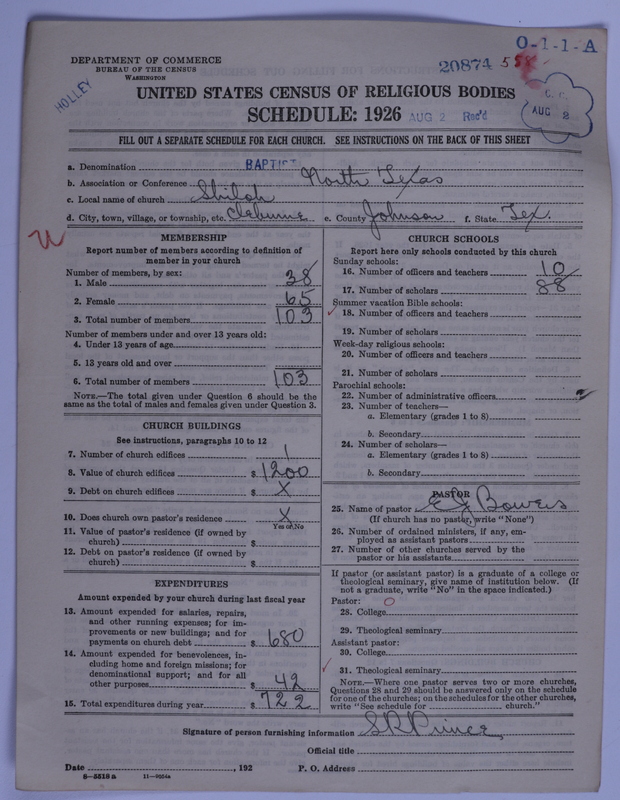 O-1-1-A
DEPARTMENT OF COMMERCE
BUREAU OF THE CENSUS
WASHINGTON
20874 558
HOLLEY
UNITED STATES CENSUS OF RELIGIOUS BODIES
SCHEDULE: 1926 AUG 2 Rec'd
C. C.
AUG 2
FILL OUT A SEPARATE SCHEDULE FOR EACH CHURCH. SEE INSTRUCTIONS ON THE BACK OF THIS SHEET
a. Denomination BAPTIST
b. Association or Conference North Texas
c. Local name of church Shiloh
d. City, town, village, or township, etc. Cleburne e. County Johnson f. State Tex.
MEMBERSHIP
Report number of members according to definition of
member in your church
Number of members, by sex:
1. Male 38
2. Female 65
3. Total number of members 103
Number of members under and over 13 years old:
4. Under 13 years of age
5. 13 years old and over
6. Total number of members 103
NOTE.—The total given under Question 6 should be the
same as the total of males and females given under Question 3.
CHURCH BUILDINGS
See instructions, paragraphs 10 to 12
7. Number of church edifices 1
8. Value of church edifices $ 1200
9. Debt on church edifices $ X
10. Does church own pastor's residence X
Yes or No
11. Value of pastor's residence (if owned by
church) $
12. Debt on pastor's residence (if owned by
church) $
EXPENDITURES
Amount expended by your church during last fiscal year
13. Amount expended for salaries, repairs,
and other running expenses; for im-
provements or new buildings; and for
payments on church debt $ 680
14. Amount expended for benevolences, in-
cluding home and foreign missions; for
denominational support; and for all
other purposes $ 42
15. Total expenditures during year $ 722
CHURCH SCHOOLS
Report here only schools conducted by this church
Sunday schools:
16. Number of officers and teachers 10
17. Number of scholars 88
Summer vacation Bible schools:
18. Number of officers and teachers
19. Number of scholars
Week-day religious schools:
20. Number of officers and teachers
21. Number of scholars
Parochial schools:
22. Number of administrative officers
23. Number of teachers—
a. Elementary (grades 1 to 8)
b. Secondary
24. Number of scholars—
a. Elementary (grades 1 to 8)
b. Secondary
PASTOR
25. Name of pastor E J Bowers
(If church has no pastor, write "None")
26. Number of ordained ministers, if any, em-
ployed as assistant pastors
27. Number of other churches served by the
pastor or his assistants
If pastor (or assistant pastor) is a graduate of a college or
theological seminary, give name of institution below. (If
not a graduate, write "No" in the space indicated.)
Pastor: O
28. College
29. Theological seminary
Assistant pastor:
30. College
31. Theological seminary
NOTE.—Where one pastor serves two or more churches,
Questions 28 and 29 should be answered only on the schedule
for one of the churches; on the schedules for the other churches,
write "See schedule for church."
Signature of person furnishing information S R Prince
Official title
Date , 192 P. O. Address
8—5519a 11—9354a